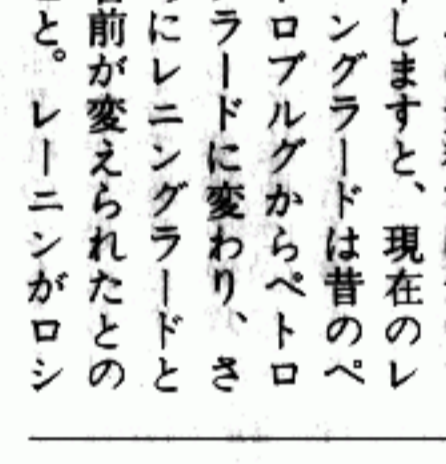 しますと、現在のレ
ングラードは昔のペ
ロブルグからペトロ
ラードに変わり、さ
にレニングラードと
前が変えられたとの
と。レーニンがロシ